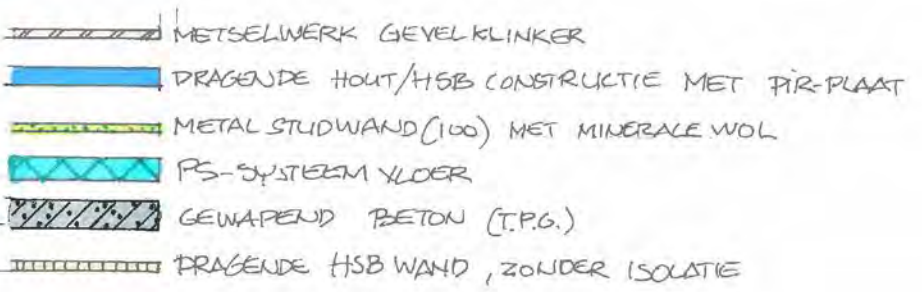 METSELWERK GEVELKLINKER
DRAGENDE HOUT/HSB CONSTRUCTIE MET PIR-PLAAT
METAL STUDWAND (100) MET MINERALE WOL
PS-SYSTEEM VLOER
GEWAPEND BETON (T.P.G.)
DRAGENDE HSB WAND, ZONDER ISOLATIE